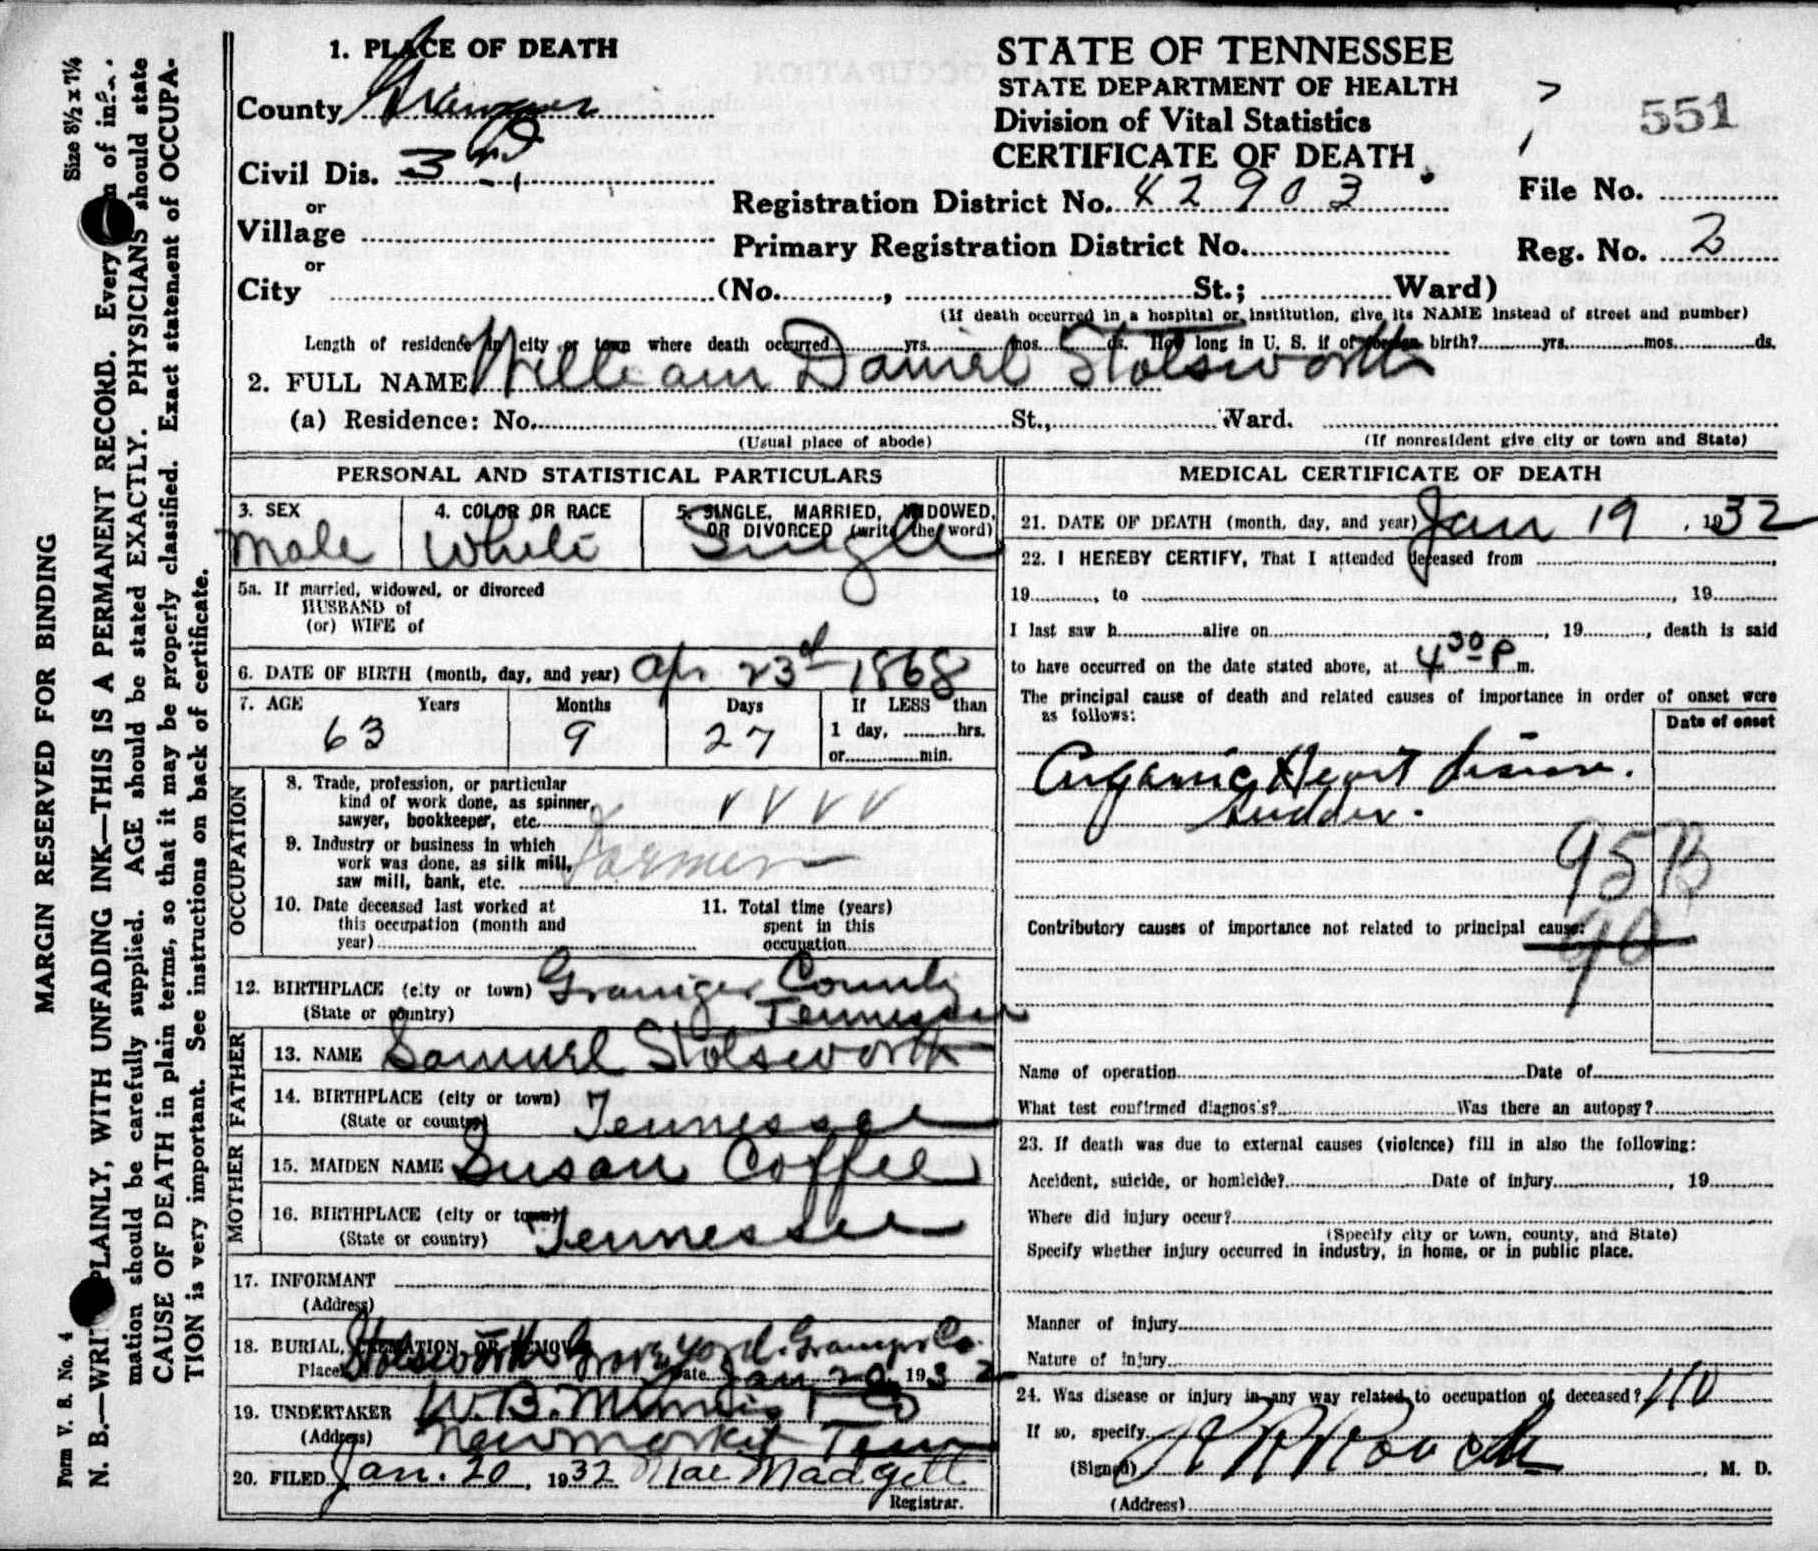 MARGIN RESERVED FOR BINDING
Form V. B. No. 4
Size 8½ x 7¼
N. B.—WRITE PLAINLY, WITH UNFADING INK—THIS IS A PERMANENT RECORD. Every of
mation should be carefully supplied. AGE should be stated EXACTLY. PHYSICIANS should state
CAUSE OF DEATH in plain terms, so that it may be properly classified. Exact statement of OCCUPA-
TION is very important. See instructions on back of certificate.
1. PLACE OF DEATH
County Grainger
Civil Dis. 3rd
or
Village
or
City (No. , St.; Ward)
STATE OF TENNESSEE
STATE DEPARTMENT OF HEALTH
Division of Vital Statistics
CERTIFICATE OF DEATH
551
Registration District No. 42903
File No.
Primary Registration District No.
Reg. No. 2
(If death occurred in a hospital or institution, give its NAME instead of street and number)
Length of residence in city or town where death occurred yrs. mos. ds. How long in U. S. if of foreign birth? yrs. mos. ds.
2. FULL NAME William Daniel Stolsworth
(a) Residence: No. St., Ward.
(Usual place of abode) (If nonresident give city or town and State)
PERSONAL AND STATISTICAL PARTICULARS
3. SEX
Male
4. COLOR OR RACE
White
5. SINGLE, MARRIED, WIDOWED, OR DIVORCED (write the word)
Single
5a. If married, widowed, or divorced
HUSBAND of
(or) WIFE of
6. DATE OF BIRTH (month, day, and year) Apr 23d 1868
7. AGE Years Months Days If LESS than
63 9 27 1 day, hrs.
or min.
OCCUPATION
8. Trade, profession, or particular
kind of work done, as spinner,
sawyer, bookkeeper, etc.
9. Industry or business in which
work was done, as silk mill,
saw mill, bank, etc. Farmer
10. Date deceased last worked at
this occupation (month and
year)
11. Total time (years)
spent in this
occupation
12. BIRTHPLACE (city or town) Grainger County
(State or country) Tennessee
FATHER
13. NAME Samuel Stolsworth
14. BIRTHPLACE (city or town)
(State or country) Tennessee
MOTHER
15. MAIDEN NAME Susan Coffee
16. BIRTHPLACE (city or town)
(State or country) Tennessee
17. INFORMANT
(Address)
18. BURIAL, CREMATION OR REMOVAL
Place Stolsworth Grave yard. Co. Date Jan 20 1932
19. UNDERTAKER W. B.
(Address) Newmarket Tenn
20. FILED Jan. 20, 1932 Mae Madgett
Registrar.
MEDICAL CERTIFICATE OF DEATH
21. DATE OF DEATH (month, day, and year) Jan 19, 1932
22. I HEREBY CERTIFY, That I attended deceased from
19 , to , 19
I last saw h alive on , 19 , death is said
to have occurred on the date stated above, at 4 30 P m.
The principal cause of death and related causes of importance in order of onset were
as follows:
Date of onset
Organic Heart disease.
sudden.
95B
Contributory causes of importance not related to principal cause:
90
Name of operation Date of
What test confirmed diagnosis? Was there an autopsy?
23. If death was due to external causes (violence) fill in also the following:
Accident, suicide, or homicide? Date of injury , 19
Where did injury occur?
(Specify city or town, county, and State)
Specify whether injury occurred in industry, in home, or in public place.
Manner of injury
Nature of injury
24. Was disease or injury in any way related to occupation of deceased? no
If so, specify
(Signed) Roach , M. D.
(Address)